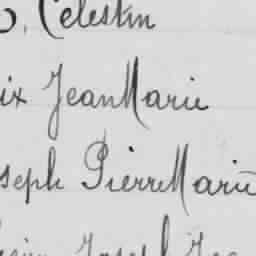 Célestin
ix Jean Marie
seph Pierre Marie
Joseph